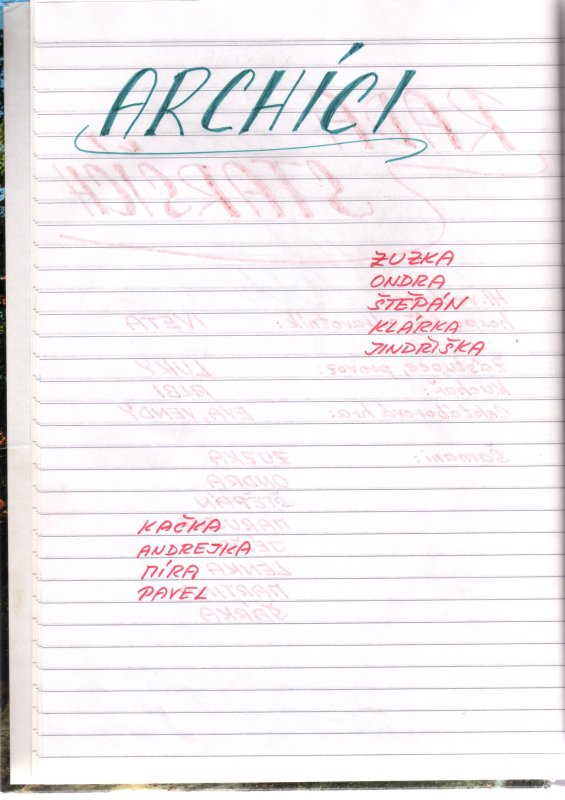 ARCHÍCI
ZUZKA
ONDRA
ŠTĚPÁN
KLÁRKA
JINDŘIŠKA
KAČKA
ANDREJKA
MÍRA
PAVEL